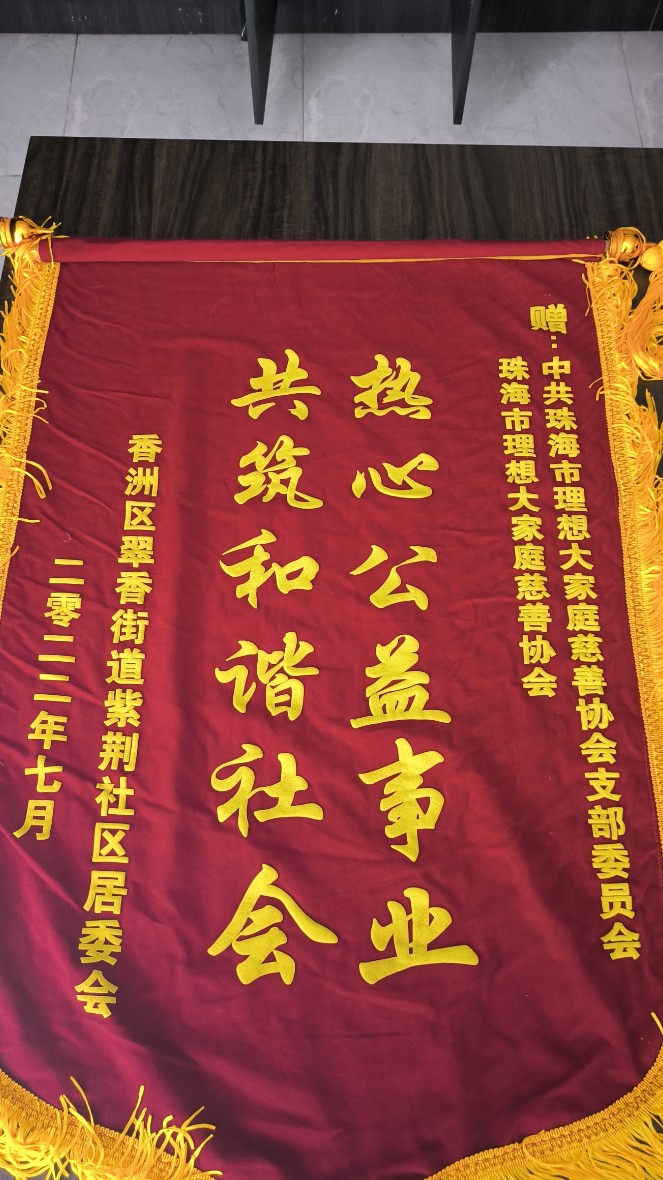 赠：中共珠海市理想大家庭慈善协会支部委员会
珠海市理想大家庭慈善协会
热心公益事业
共筑和谐社会
香洲区翠香街道紫荆社区居委会
二零二二年七月